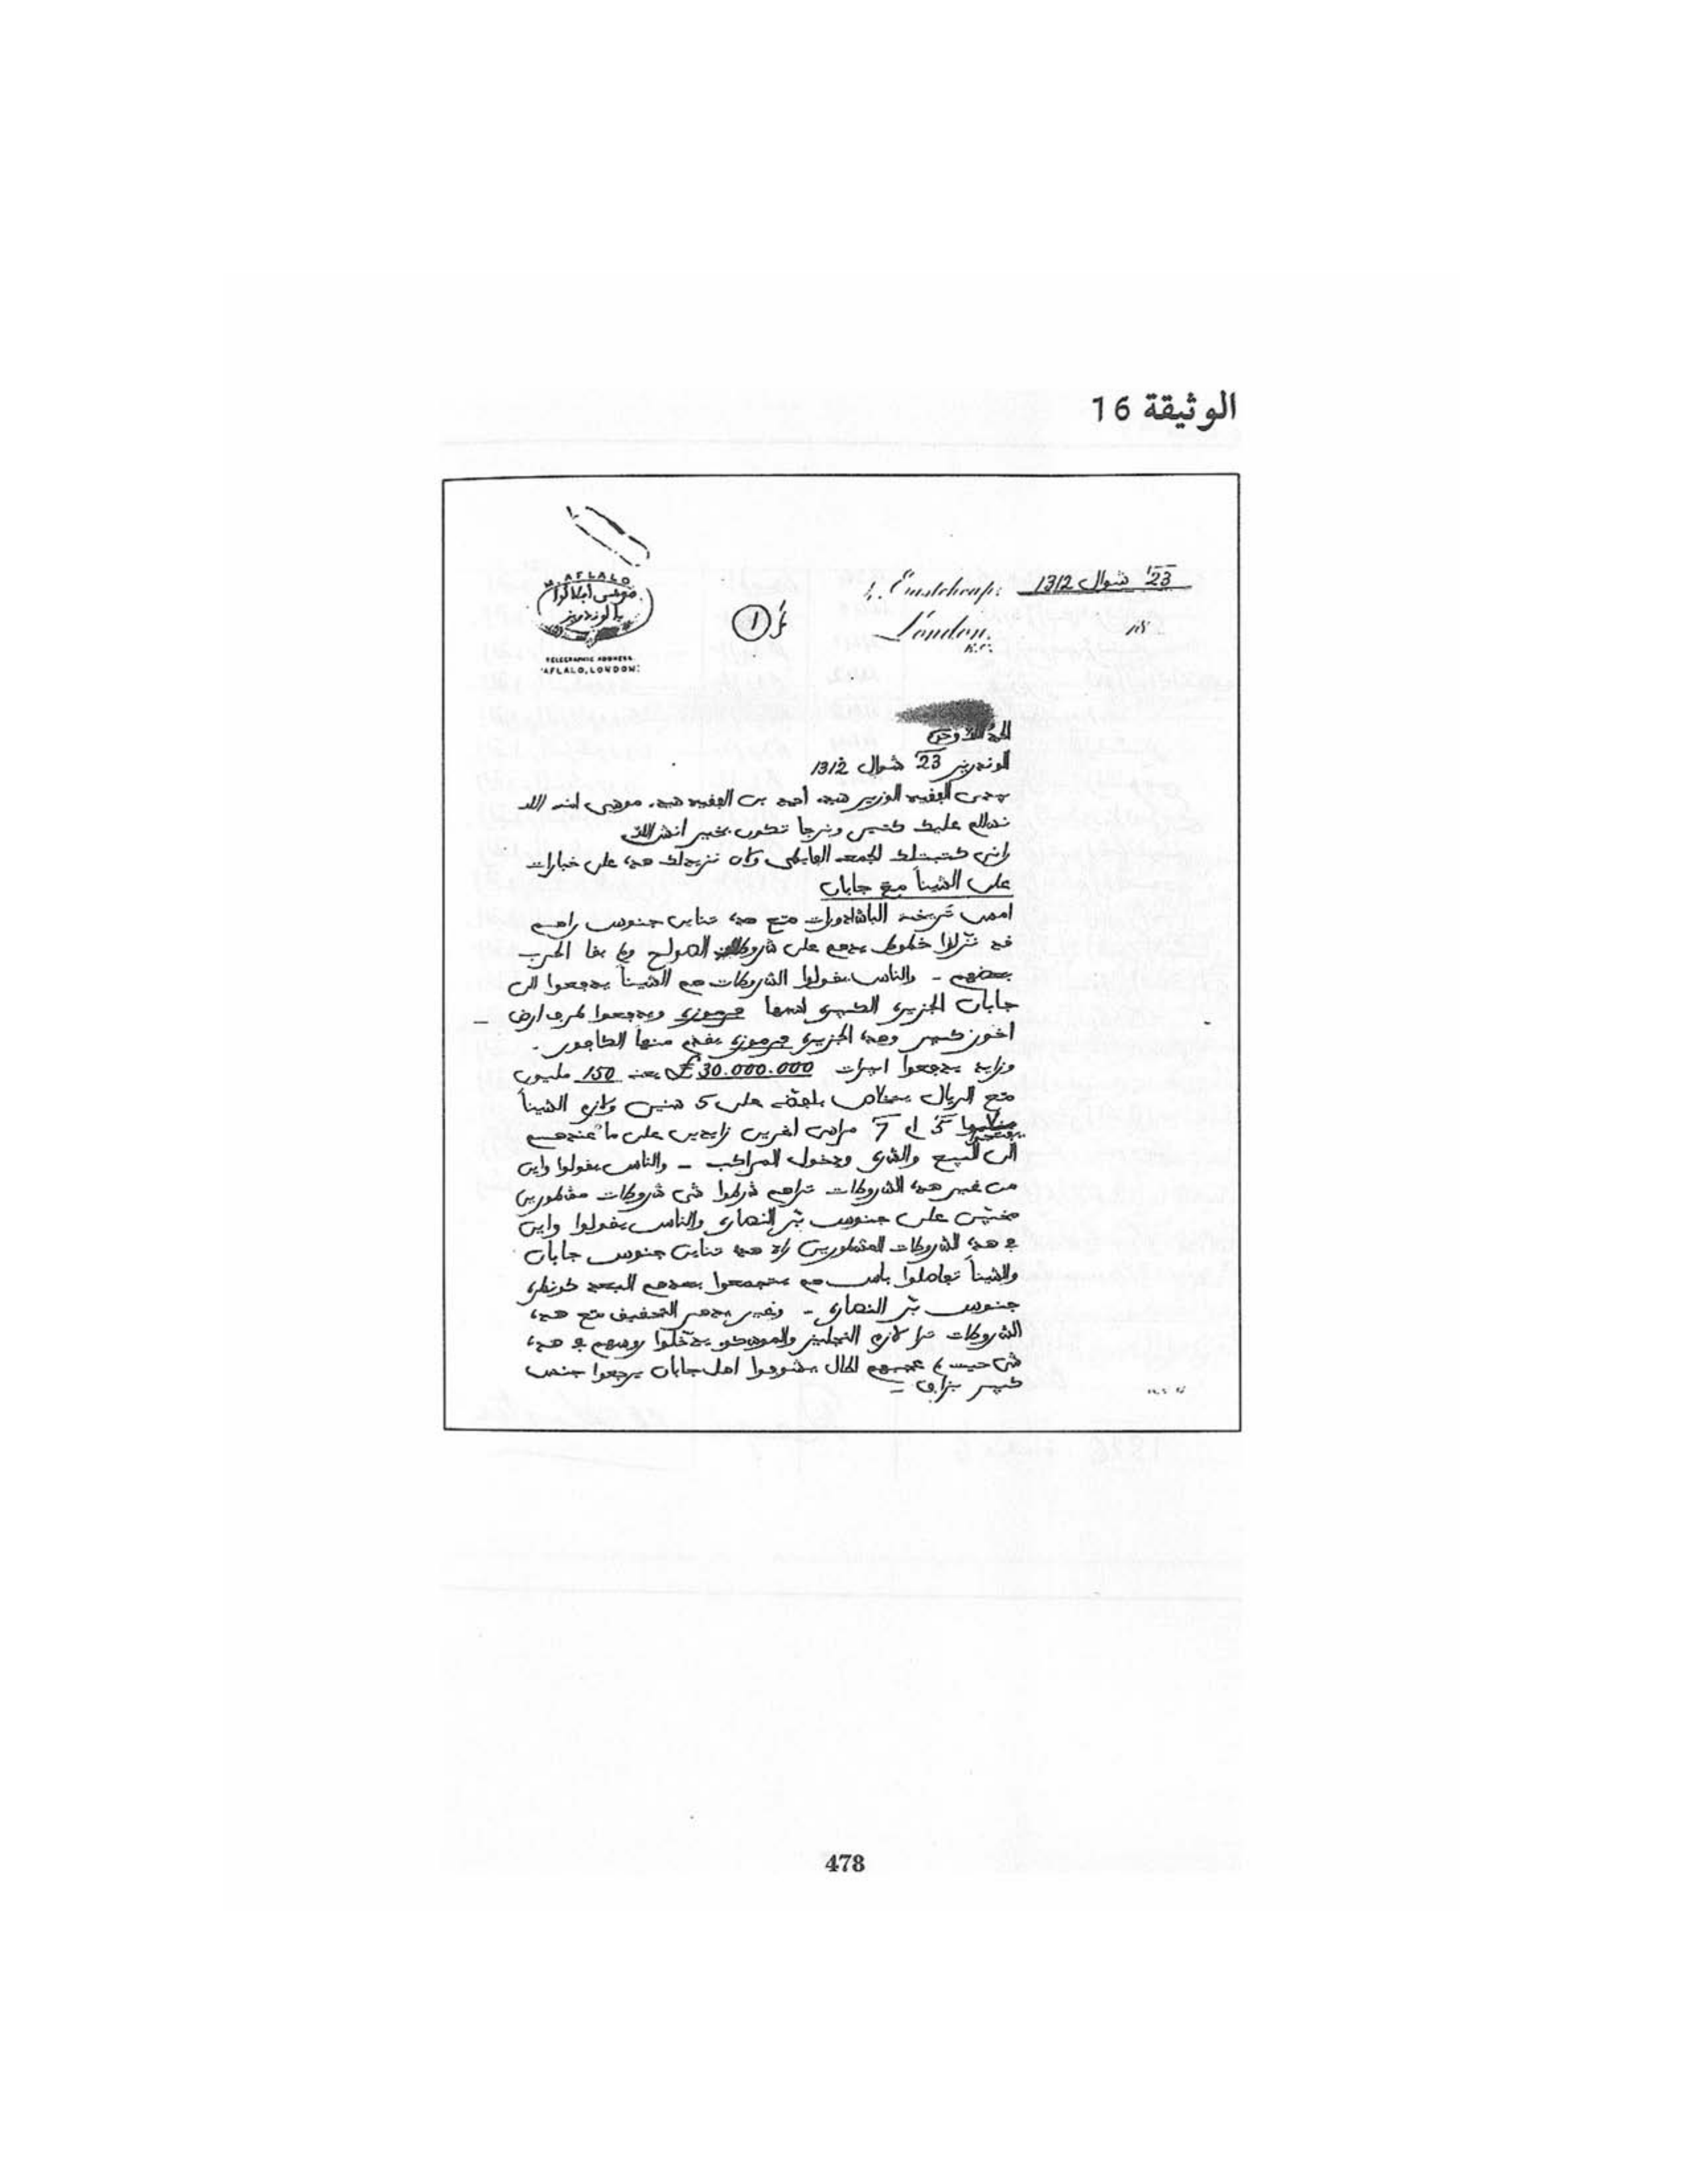 الوثيقة 16
M. AFLALO
موسى أفلالوا
بالوندريز
TELEGRAPHIC ADDRESS.
"AFLALO, LONDON."
1
4, Eastcheap, 23 شوال 1312
London. 18
E.C.
الحمد لله وحده
الوندريز 23 شوال 1312
الفقيه الوزير سيد احمد بن الفقيه سيد موسى امنه الله
نسالم عليك كثير ونرجا تكون بخير انشالله
رانى كتبتلك الجمعه الفايطى وكان نزيدلك هده على خبارات
على الشينا مع جابان
امس تريخه الباشادورات متع هده تناين جنوس راهم
قد نزلوا خطوط يدهم على شروطات الصولح ولا بقا الحرب
بعضهم - والناس يقولوا الشروطات هم الشينا يدفعوا الى
جابان الجزيره الكبيره اسمها فرموزه ويدفعوا طرف ارض -
اخور كبير وهده الجزيره فرموزه يقدم منها الكافور -
وزايد يدفعوا ابرات £30.000.000 يعنه 150 مليون
متع الريال بخلاص على 5 سنين ولازم الشينا
5 الى 7 مراسى اخرين زايدين على ما عندهم
الى البيع والشرى ودخول المراكب - والناس يقولوا واين
من غير هده الشروطات تراهم شرطوا شى شروطات
على جنوس بر النصاره والناس يقولوا واين
فى هده الشروطات راه هده تناين جنوس جابان
والشينا تعاملوا باس هم يتجمعوا بعدهم البعد كونطره
جنوس بر النصاره - التحقيق متع هده
الشروطات ترا لازم النجليز والموسكو يدخلوا روسهم فى هده
شى حيت لا عجبهم الحال يشوفوا اهل جابان يرجعوا جنس
كبير بزاف -
478